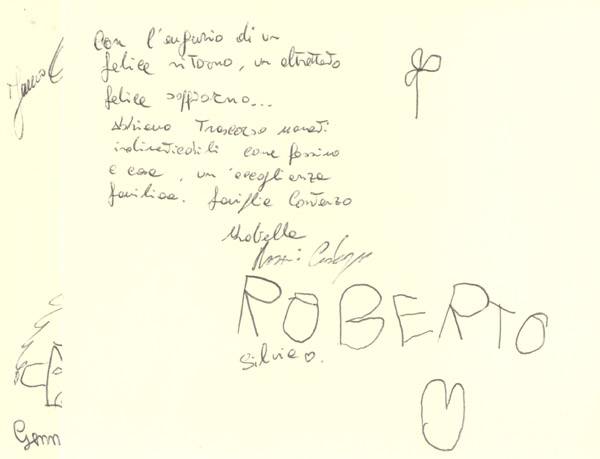 Con l'augurio di un
felice ritorno, un altrettanto
felice soggiorno...
Abbiamo Trascorso momenti
indimenticabili come fossimo
a casa, un'accoglienza
familiare. famiglia Costanzo
Isabella
ROBERTO
Silvia